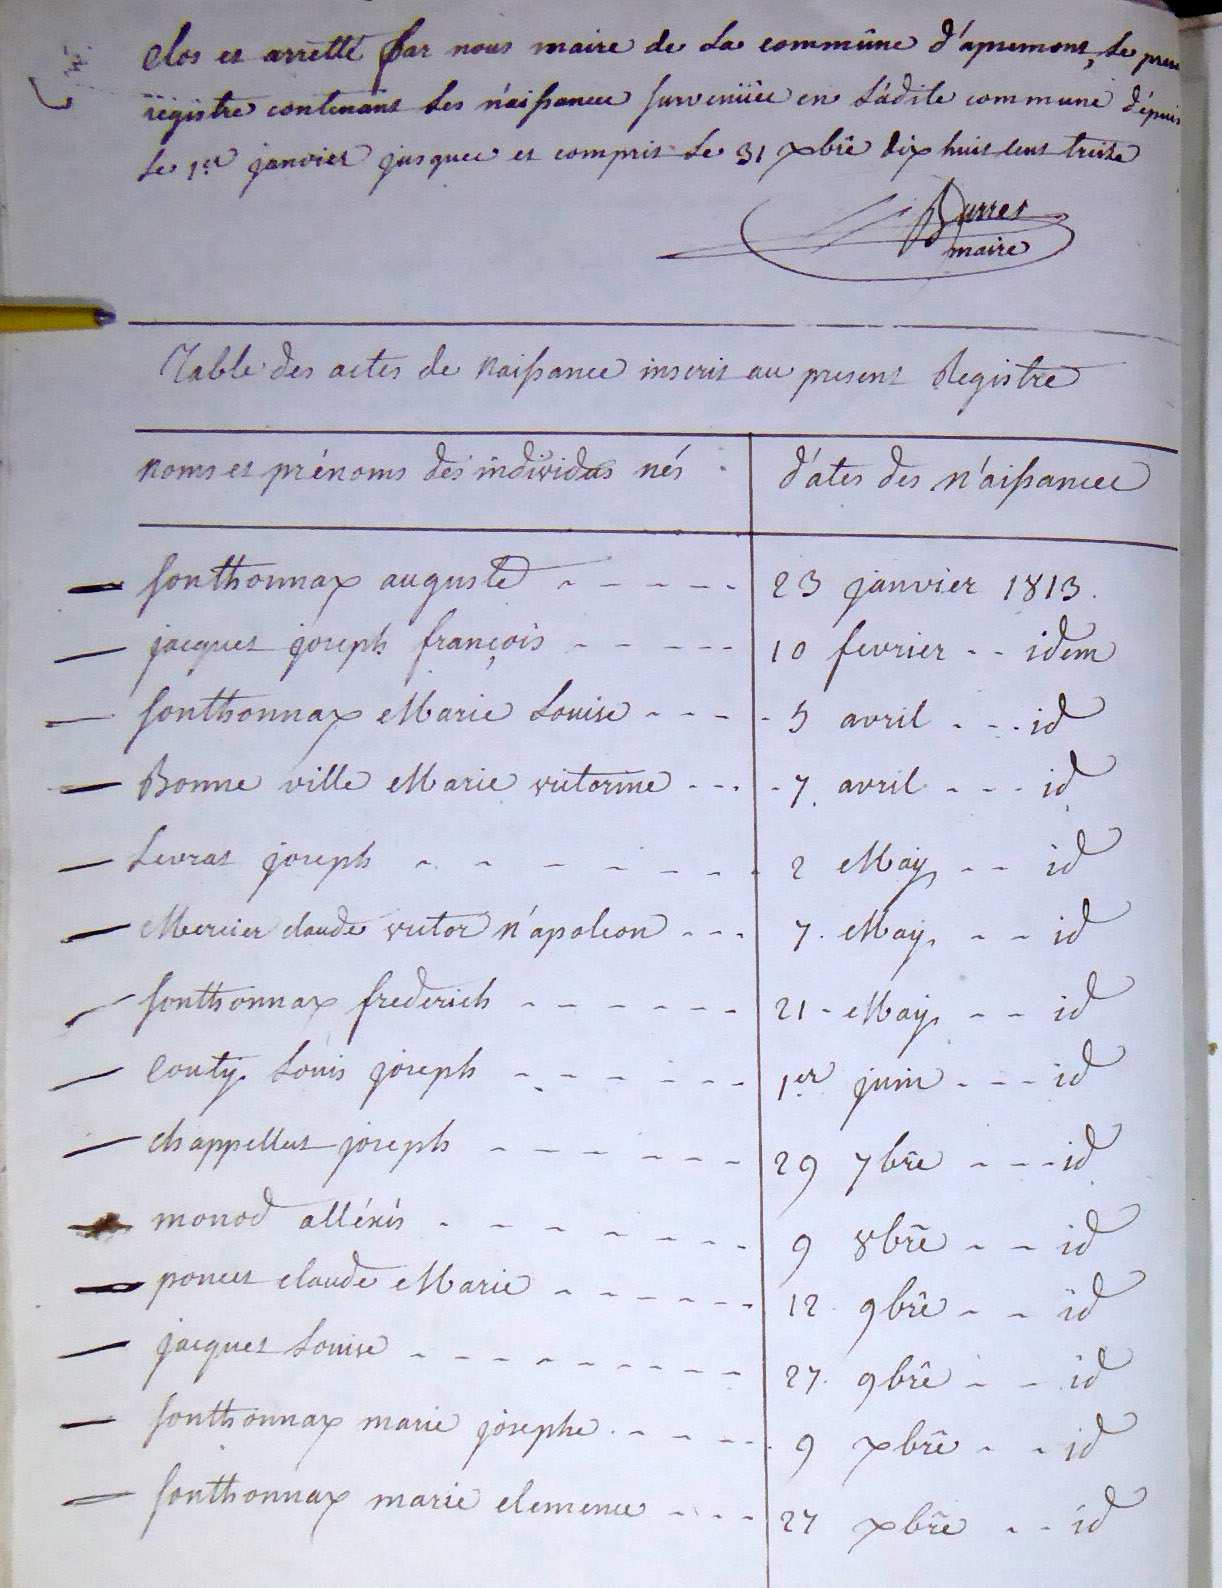 Clos et arretté par nous maire de la commûne d'apremont, le pres
registre contenant les naissancee survenüee en ladite commune dépuis
le 1er janvier jusquee et compris le 31 xbre dix huit cent treize
Burret
maire
Table des actes de naissancee inscrit au present Registre
noms et prénoms des individus nés
d'ates des n'aissancee
sonthonnax auguste - - - - - 23 janvier 1813.
jacquet joseph françois - - - - - 10 fevrier - - idem
sonthonnax Marie Louise - - - - 5 avril - - - id
Bonne ville Marie victorine - - - - 7. avril - - - id
Levrat joseph - - - - - - - 2 May - - id
Mercier claude victor n'apoleon - - - 7. May - - id
sonthonnax frederich - - - - - - 21 - May - - id
Couty Louis joseph - - - - - - 1er juin - - - id
chappellut joseph - - - - - - 29 7bre - - - id
monod alléxis - - - - - - - 9 8bre - - id
poncet claude Marie - - - - - - 12 9bre - - id
jacquet Louise - - - - - - - - - 27. 9bre - - id
sonthonnax marie josephe - - - - - 9 xbre - - id
sonthonnax marie clemence - - - - 27 xbre - - id